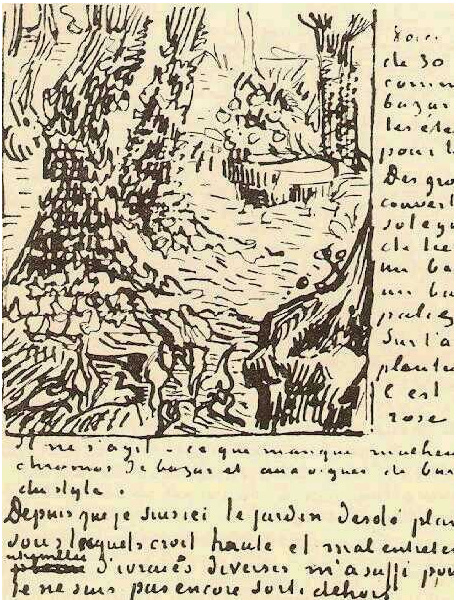 Voici
de 30
comm
bazar
les éte
pour l
Des gro
couvert
sol eg
de lie
un ba
un bu
palies
Sur l'a
plante
C est
rose
Il ne s'agit – ce que manque malheu
chromos de bazar et aux orgues de bar
du style.
Depuis que je suis ici le jardin désolé plan
sous lesquels croit haute et mal entrete
d'ivraies diverses m'a suffi pou
je ne suis pas encore sorti dehors